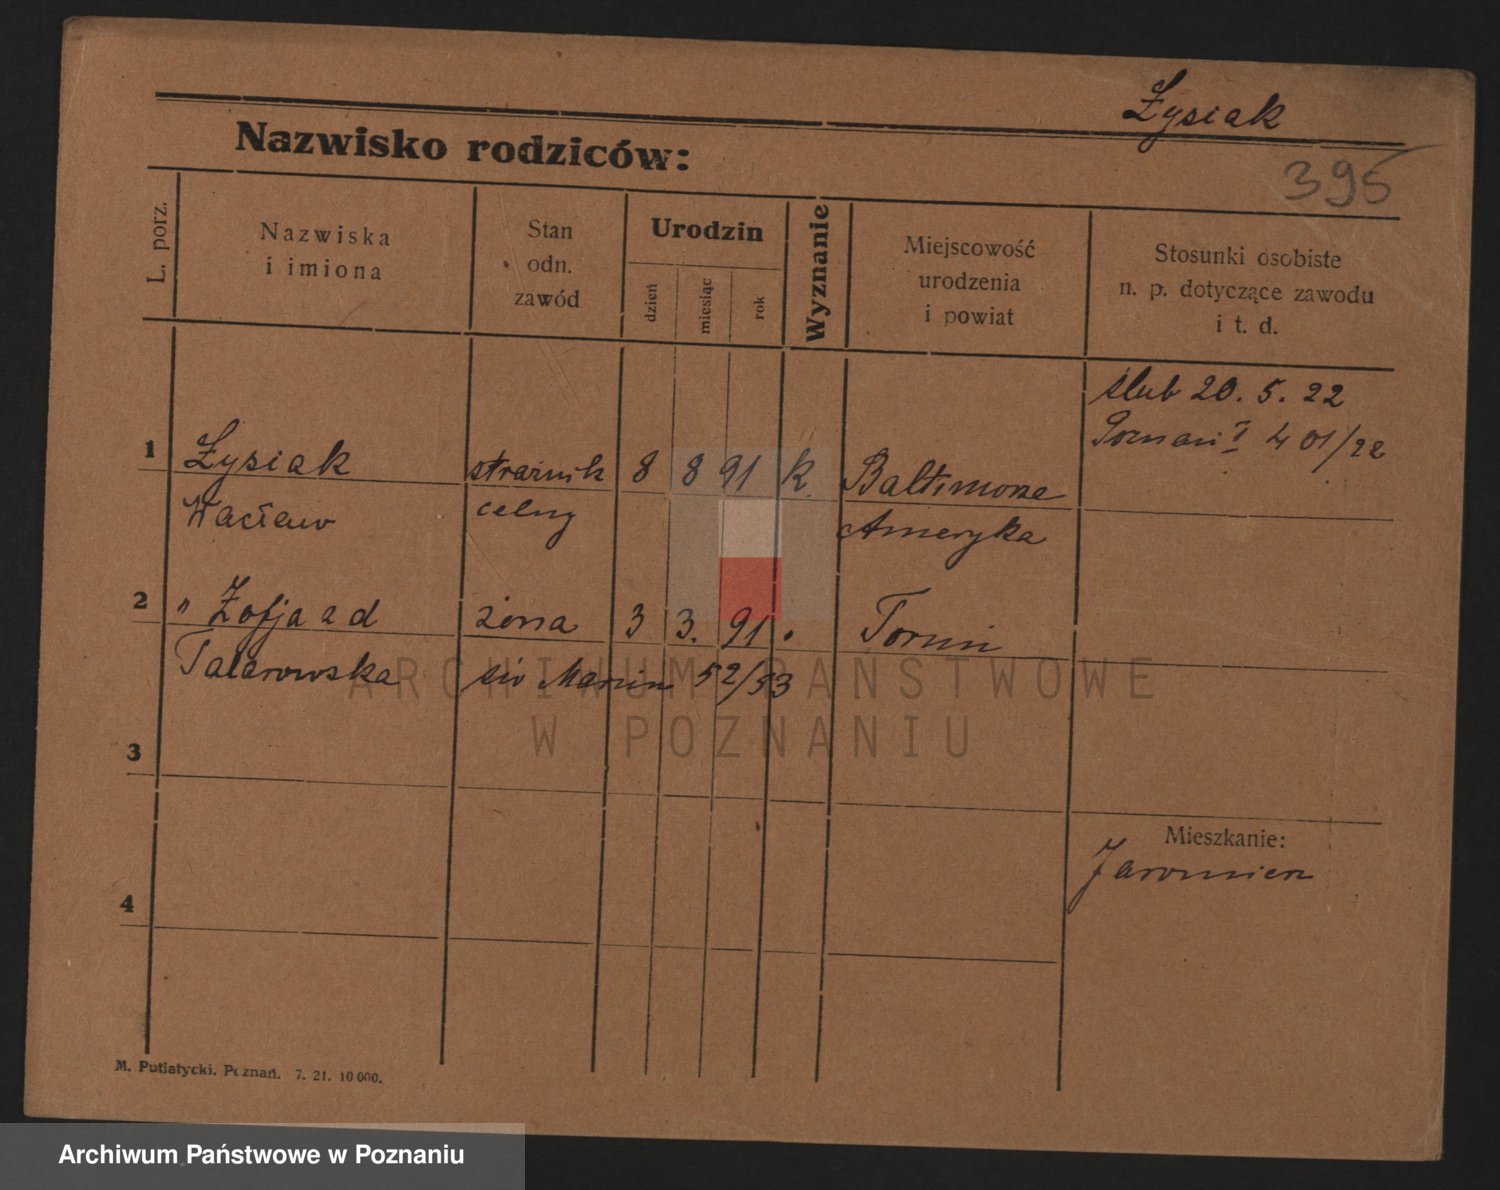 Łysiak
Nazwisko rodziców:
395
L. porz.
Nazwiska
i imiona
Stan
odn.
zawód
Urodzin
dzień
miesiąc
rok
Wyznanie
Miejscowość
urodzenia
i powiat
Stosunki osobiste
n. p. dotyczące zawodu
i t. d.
ślub 20. 5. 22
Poznań I 401/22
1 Łysiak strażnik 8 8 91 k. Baltimore
Wacław celny Ameryka
2 " Zofja ad żona 3 3. 91 Toruń
Talarowska 52/53
ARCHIWUM PAŃSTWOWE
W POZNANIU
3
Mieszkanie:
Jaromierz
4
M. Putiatycki. Poznań. 7. 21. 10 000.
Archiwum Państwowe w Poznaniu